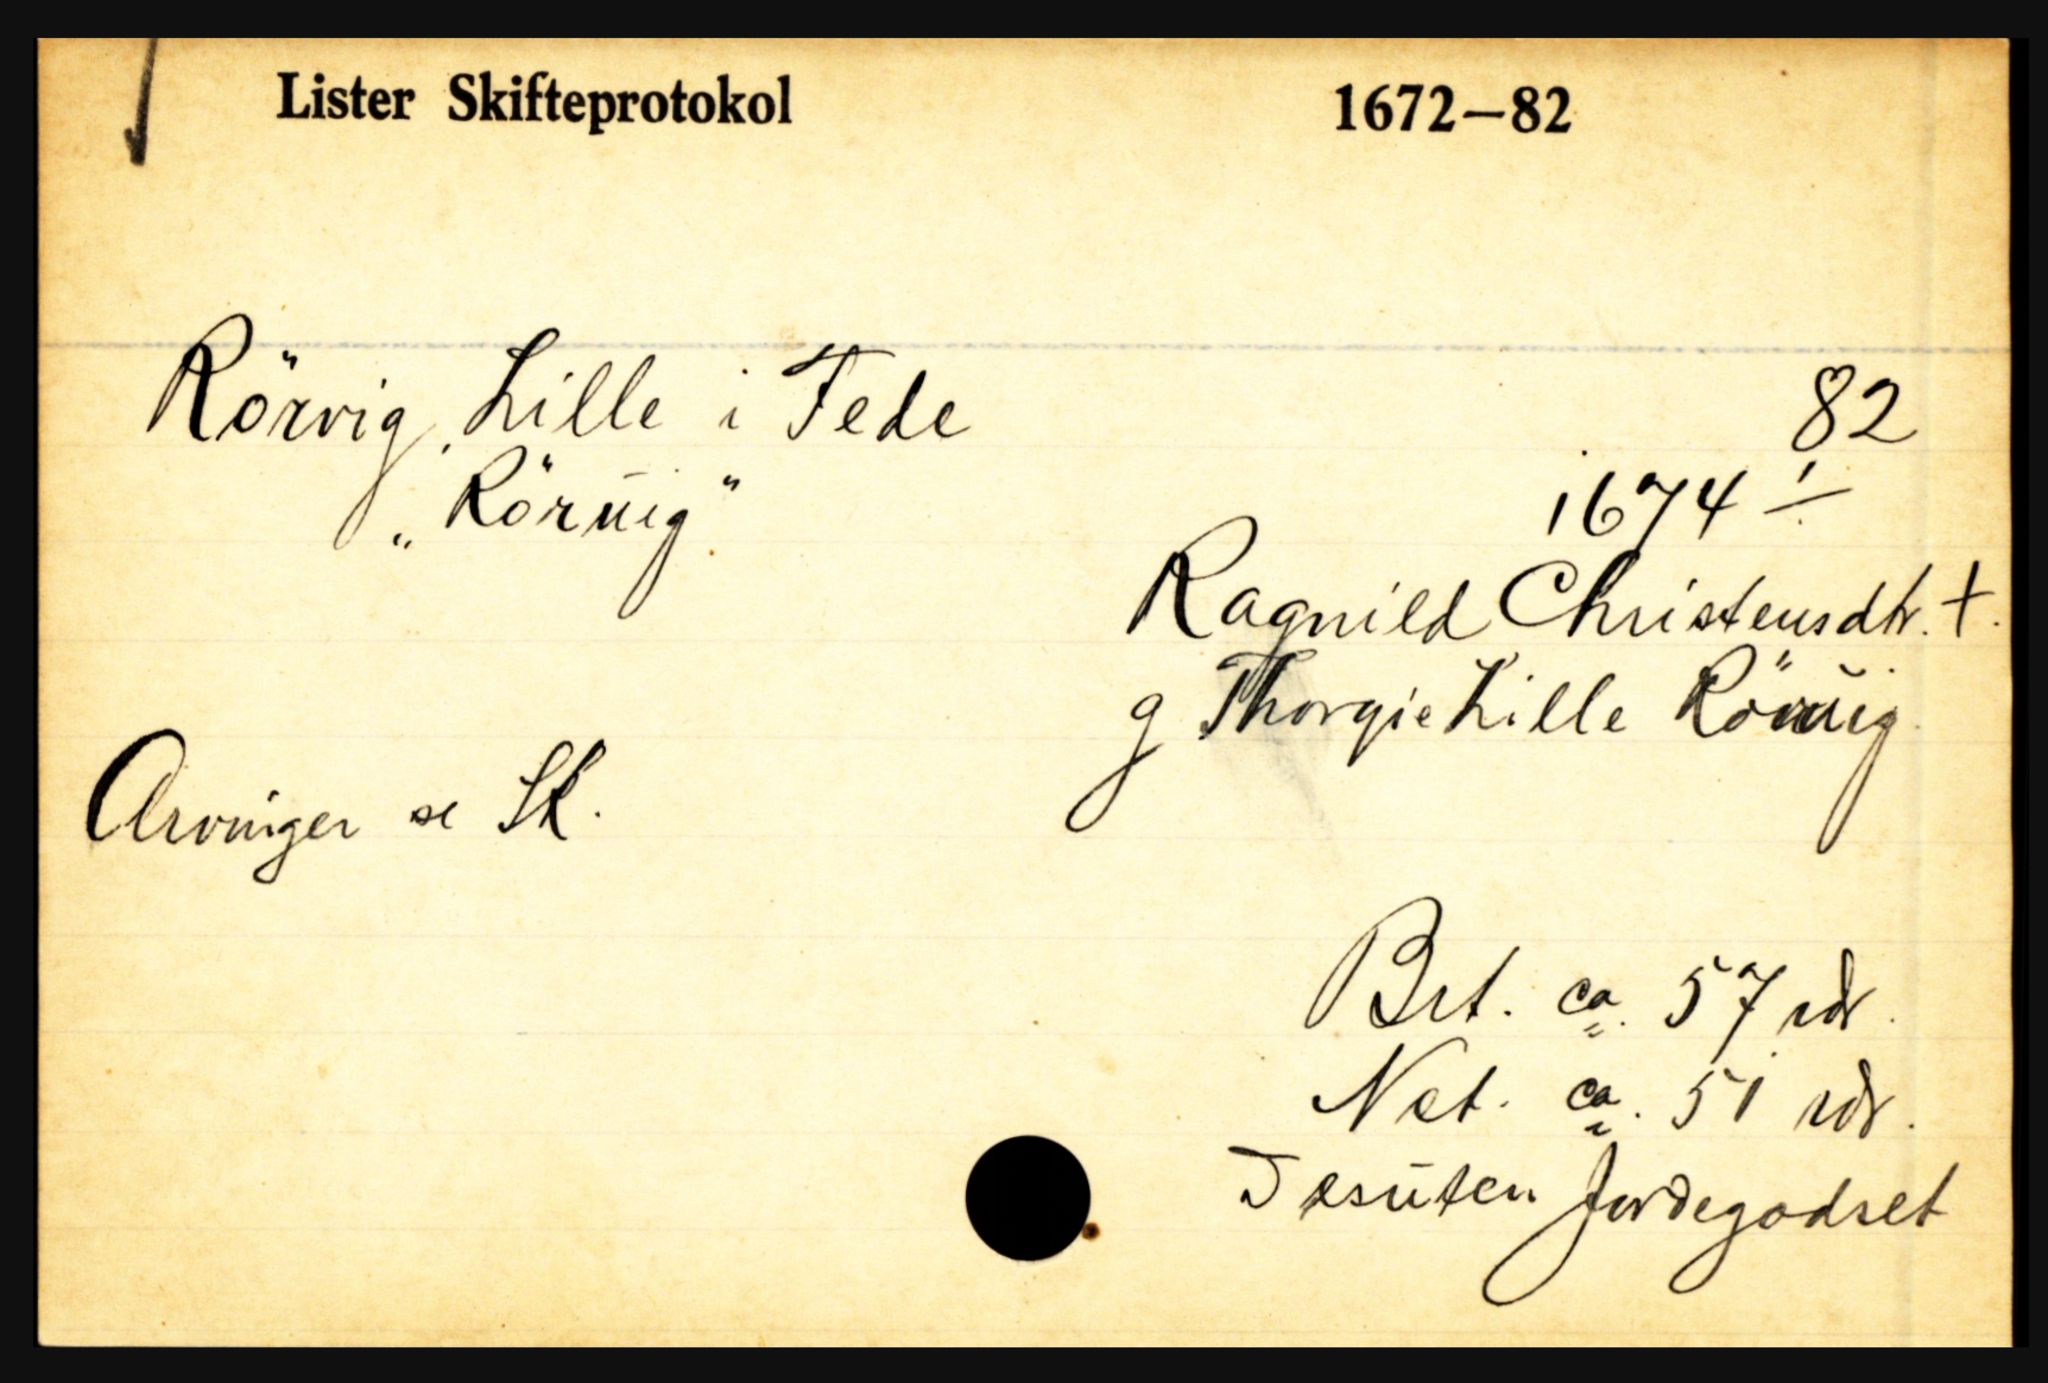 Lister Skifteprotokol 1672–82
Rörvig, Lille i Fede
82
„Rörŭig"
1674 1/
Ragnild Christensdtr. †.
g Thorgie Lille Rörŭig.
Arvinger se Sk.
Brt. ca. 57 rdr.
Net. ca. 51 rdr.
Desŭten Jordegodset